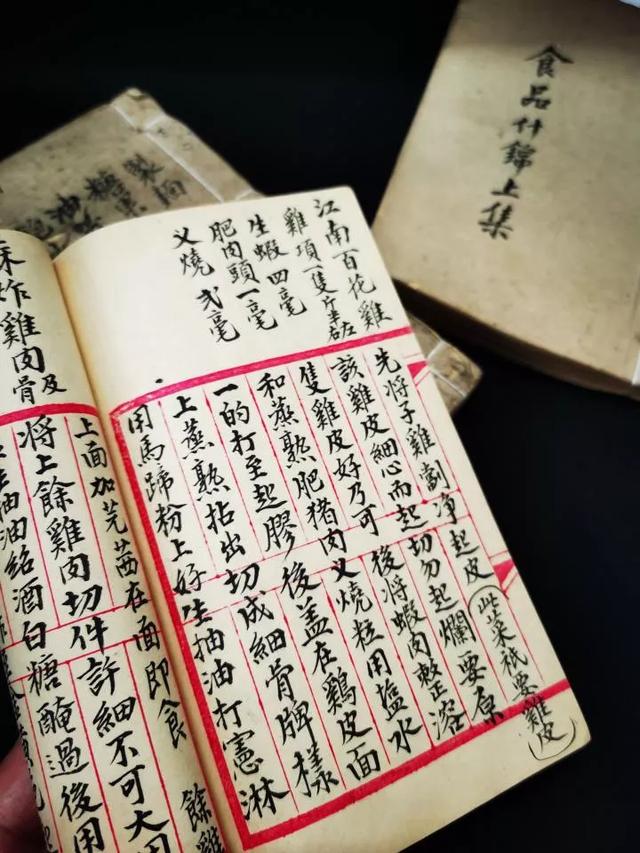 食品什錦上集
糖果
江南百花雞
雞項一隻斤半左右
生蝦四毫
肥肉頭一毫
义燒弍毫
先将子雞劏净起皮（此菜祇要雞皮）
該雞皮細心而起切勿起爛要原
隻雞皮好乃可後将蝦肉敕正溶
和蒸熟肥猪肉义燒粒用塩水
一的打至起膠後盖在鷄皮面
上蒸熟拈出切成細骨牌樣
用馬蹄粉上好生抽油打憲淋
上面加芫茜在面即食 餘雞
炸雞肉及骨
将上餘雞肉切件許細不可大用
抽油紹酒白糖醃過後用